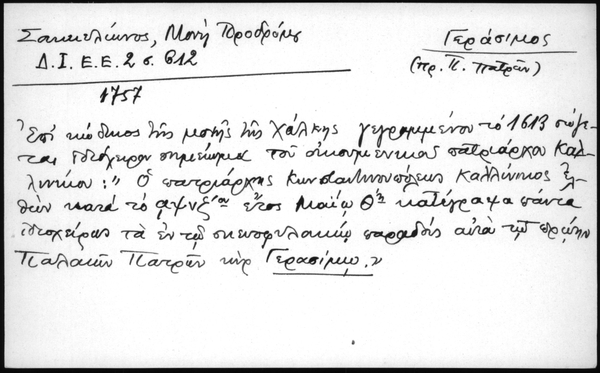 Σακκελίωνος, Μονὴ Προδρόμου
Δ.Ι.Ε.Ε. 2 σ. 612
Γεράσιμος
(πρ. Π. Πατρῶν)
1757
Ἐπὶ κώδικος τῆς μονῆς τῆς Χάλκης γεγραμμένου τὸ 1613 σώζε-
ται ἰδιόχειρον σημείωμα τοῦ οἰκουμενικοῦ πατριάρχου Καλ-
λινίκου: " Ὁ πατριάρχης Κωνσταντινουπόλεως Καλλίνικος ἐλ-
θὼν κατὰ τὸ αψνζον ἔτος Μαΐῳ θῃ κατέγραψα πάντα
ἰδιοχείρως τὰ ἐν τῷ σκευοφυλακίῳ παραδοὺς αὐτὰ τῷ πρώην
Παλαιῶν Πατρῶν κὺρ Γερασίμῳ."